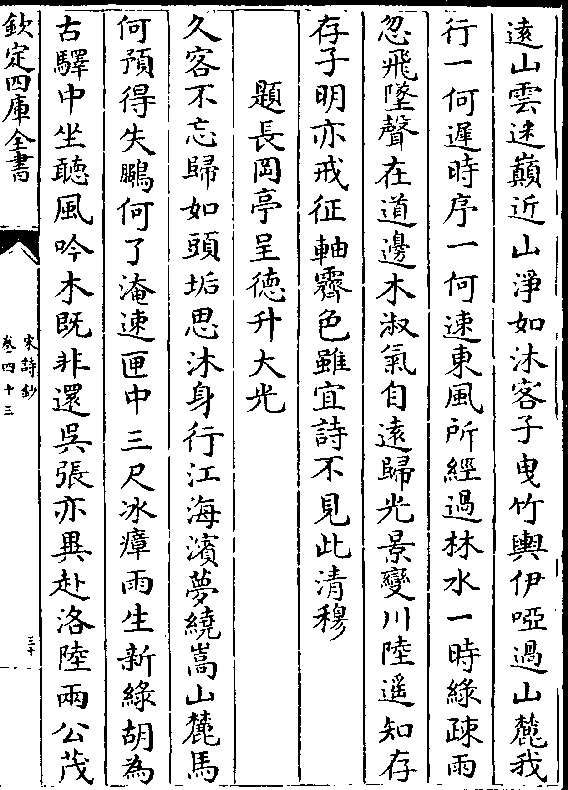 遠山雲迷巔近山淨如沐客子曳竹輿伊啞過山麓我
行一何遲時序一何速東風所經過林水一時綠疎雨
忽飛墜聲在道邊木淑氣自遠歸光景變川陸遥知存
存子明亦戒征軸霽色雖宜詩不見此清穆
題長岡亭呈德升大光
久客不忘歸如頭垢思沐身行江海濱夢繞嵩山麓馬
何預得失鵩何了淹速匣中三尺冰瘴雨生新綠胡為
古驛中坐聽風吟木既非還吳張亦異赴洛陸兩公茂
欽定四庫全書
宋詩鈔
卷四十三
三十